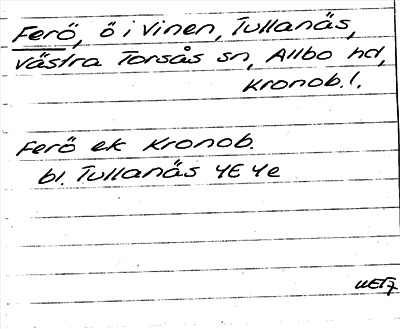 Ferö, ö i Vinen, Tullanäs,
Västra Torsås sn, Allbo hd,
Kronob. l.
Ferö ek Kronob.
bl. Tullanäs 4E 4e